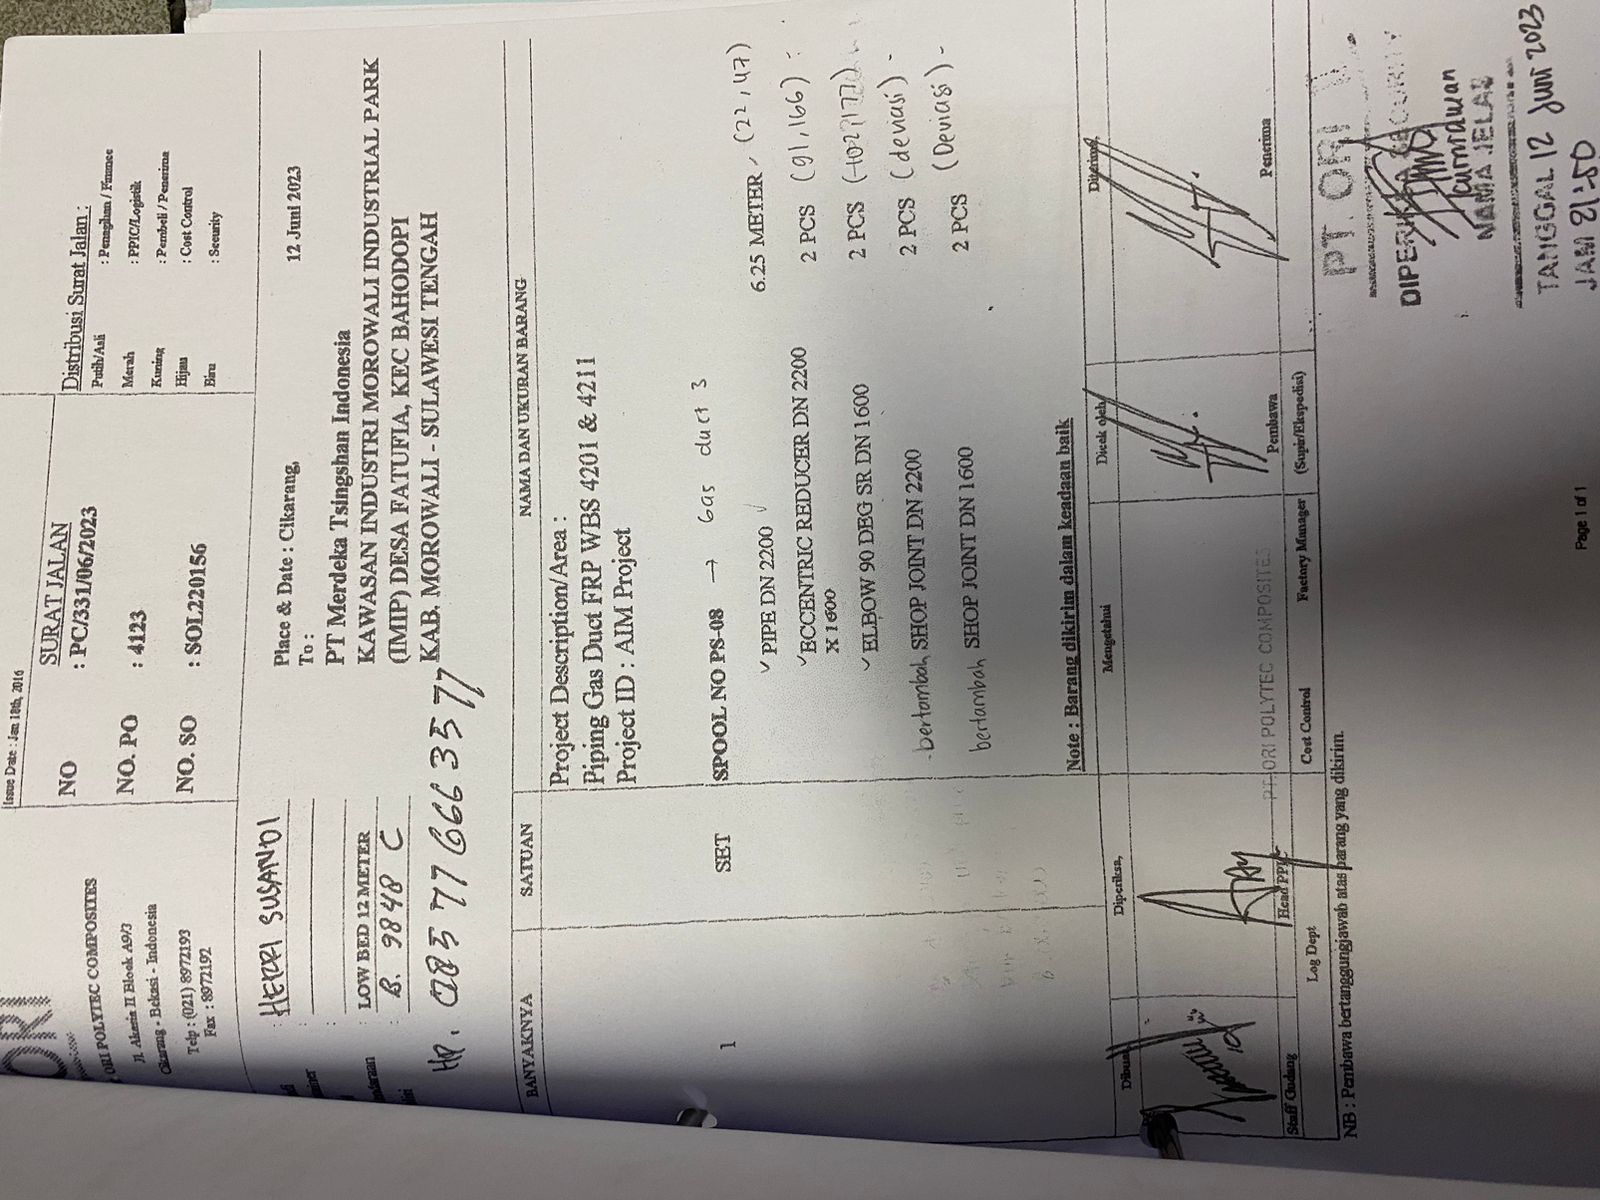 Issue Date : Jan 18th, 2016
ORI
ORI POLYTEC COMPOSITES
Jl. Akasia II Block A9/3
Cikarang - Bekasi - Indonesia
Telp : (021) 8972193
Fax : 8972192
SURAT JALAN
NO : PC/331/06/2023
NO. PO : 4123
NO. SO : SOL220156
Distribusi Surat Jalan :
Putih/Asli : Penagihan / Finance
Merah : PPIC/Logistik
Kuning : Pembeli / Penerima
Hijau : Cost Control
Biru : Security
: HERRI SUSANDI
:
: LOW BED 12 METER
: B. 9848 C
Place & Date : Cikarang, 12 Juni 2023
To :
PT Merdeka Tsingshan Indonesia
KAWASAN INDUSTRI MOROWALI INDUSTRIAL PARK
(IMIP) DESA FATUFIA, KEC BAHODOPI
KAB. MOROWALI - SULAWESI TENGAH
BANYAKNYA SATUAN NAMA DAN UKURAN BARANG
Project Description/Area :
Piping Gas Duct FRP WBS 4201 & 4211
Project ID : AIM Project
1 SET SPOOL NO PS-08 → Gas duct 3
✓ PIPE DN 2200 ✓ 6.25 METER (22, 47)
✓ ECCENTRIC REDUCER DN 2200 2 PCS (91, 166)
X 1600
✓ ELBOW 90 DEG SR DN 1600 2 PCS
- bertambah SHOP JOINT DN 2200 2 PCS (deviasi) -
bertambah SHOP JOINT DN 1600 2 PCS (Deviasi) -
Note : Barang dikirim dalam keadaan baik
Dibuat Diperiksa, Mengetahui Dicek oleh Diterima,
PT. ORI POLYTEC COMPOSITES
Head PPIC Pembawa Penerima
Staff Gudang Log Dept Cost Control Factory Manager (Supir/Ekspedisi)
NB : Pembawa bertanggungjawab atas barang yang dikirim.
PT. ORI
DIPERIKSA SECURITY
NAMA JELAS
TANGGAL 12 Juni 2023
JAM 21:50
Page 1 of 1